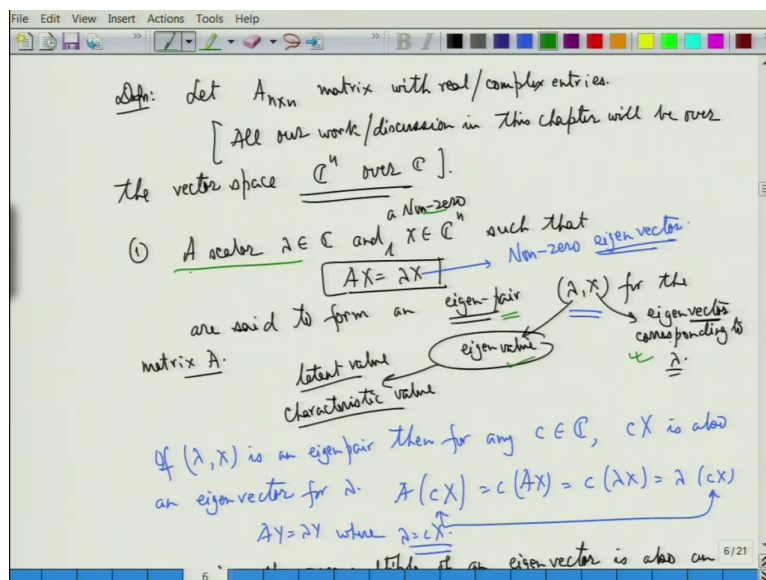 File Edit View Insert Actions Tools Help
Defn: Let A_{n×n} matrix with real/complex entries.
[All our work/discussion in this chapter will be over
the vector space ℂ^n over ℂ].
a Non-zero
① A scalar λ ∈ ℂ and X ∈ ℂ^n such that
AX = λX → Non-zero eigenvector.
are said to form an eigen-pair (λ, X) for the
matrix A.
eigenvalue
eigenvector
corresponding to
λ.
latent value
characteristic value
If (λ, X) is an eigenpair then for any c ∈ ℂ, cX is also
an eigenvector for λ. A(cX) = c(AX) = c(λX) = λ(cX)
AY = λY where λ = cX.
of an eigenvector is also an
6/21
6